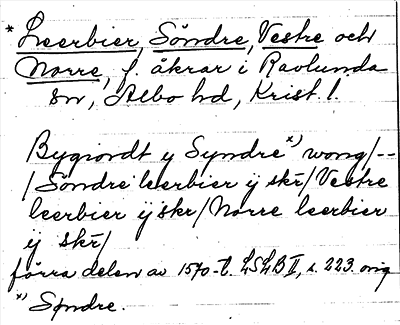 * Leerbier, Söndre, Vestre och
Norre, f. åkrar i Ravlunda
sn, Albo hd, Krist. l.
Bygiordt y Syndre *) wong/--
/Söndre leerbier ij skr/Vestre
leerbier ij skr/Norre leerbier
ij skr/
förra delen av 1570-t. LSLB II, s. 223. orig
*) Spndre.